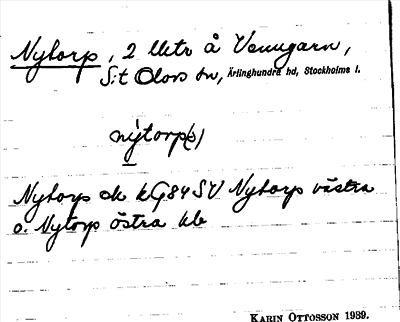 Nytorp, 2 lletr å Venngarn,
S:t Olovs sn, Ärlinghundra hd, Stockholms l.
nytorp(s)
Nytorp ek kG84SV Nytorp västra
o. Nytorp östra kb
KARIN OTTOSSON 1939.